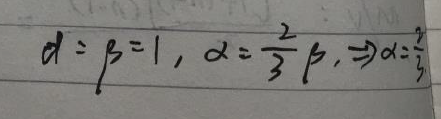 d = β = 1, α = 2/3 β, ⇒ α = 2/3